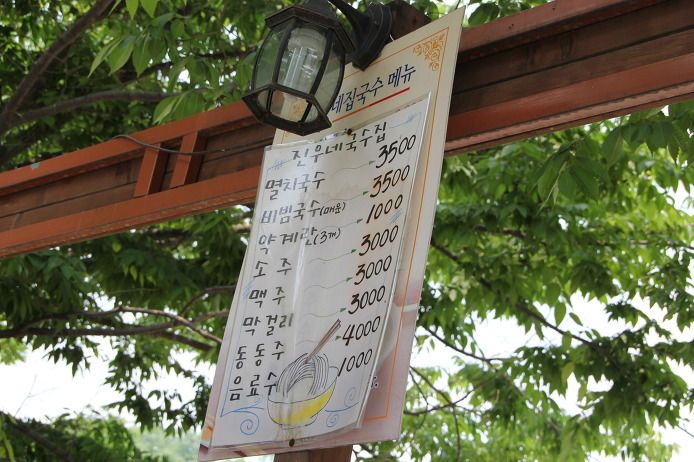 네집국수 메뉴
진우네국수집
멸치국수 3500
비빔국수(매움) 3500
약계란(3개) 1000
소주 3000
맥주 3000
막걸리 3000
동동주 4000
음료수 1000